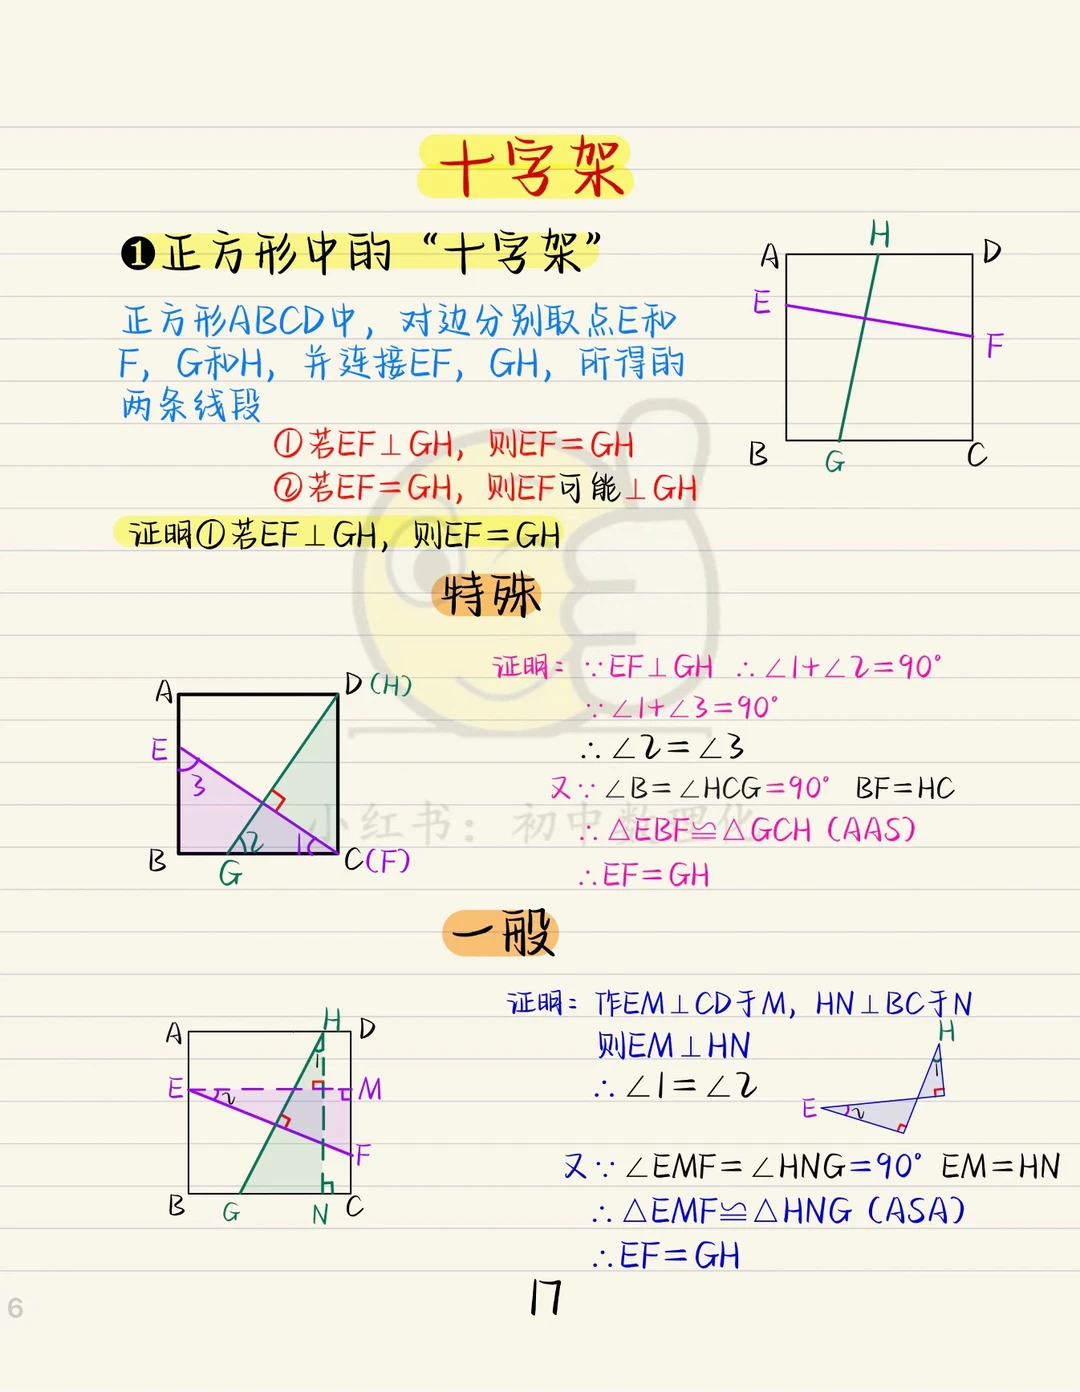 十字架
❶正方形中的“十字架”
正方形ABCD中，对边分别取点E和
F，G和H，并连接EF，GH，所得的
两条线段
①若EF⊥GH，则EF=GH
②若EF=GH，则EF可能⊥GH
A
H
D
E
F
B
G
C
证明①若EF⊥GH，则EF=GH
特殊
A
D(H)
E
3
2
1
B
G
C(F)
证明：∵EF⊥GH ∴∠1+∠2=90°
∵∠1+∠3=90°
∴∠2=∠3
又∵∠B=∠HCG=90° BF=HC
∴△EBF≌△GCH（AAS）
∴EF=GH
小红书：初中数理化
一般
A
H
D
1
E
2
M
F
B
G
N
C
证明：作EM⊥CD于M，HN⊥BC于N
则EM⊥HN
∴∠1=∠2
H
1
E
2
又∵∠EMF=∠HNG=90° EM=HN
∴△EMF≌△HNG（ASA）
∴EF=GH
17
6